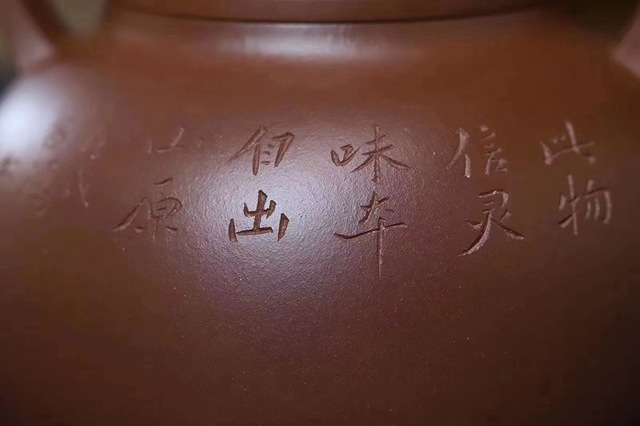 此物
信灵
味本
自出
山原